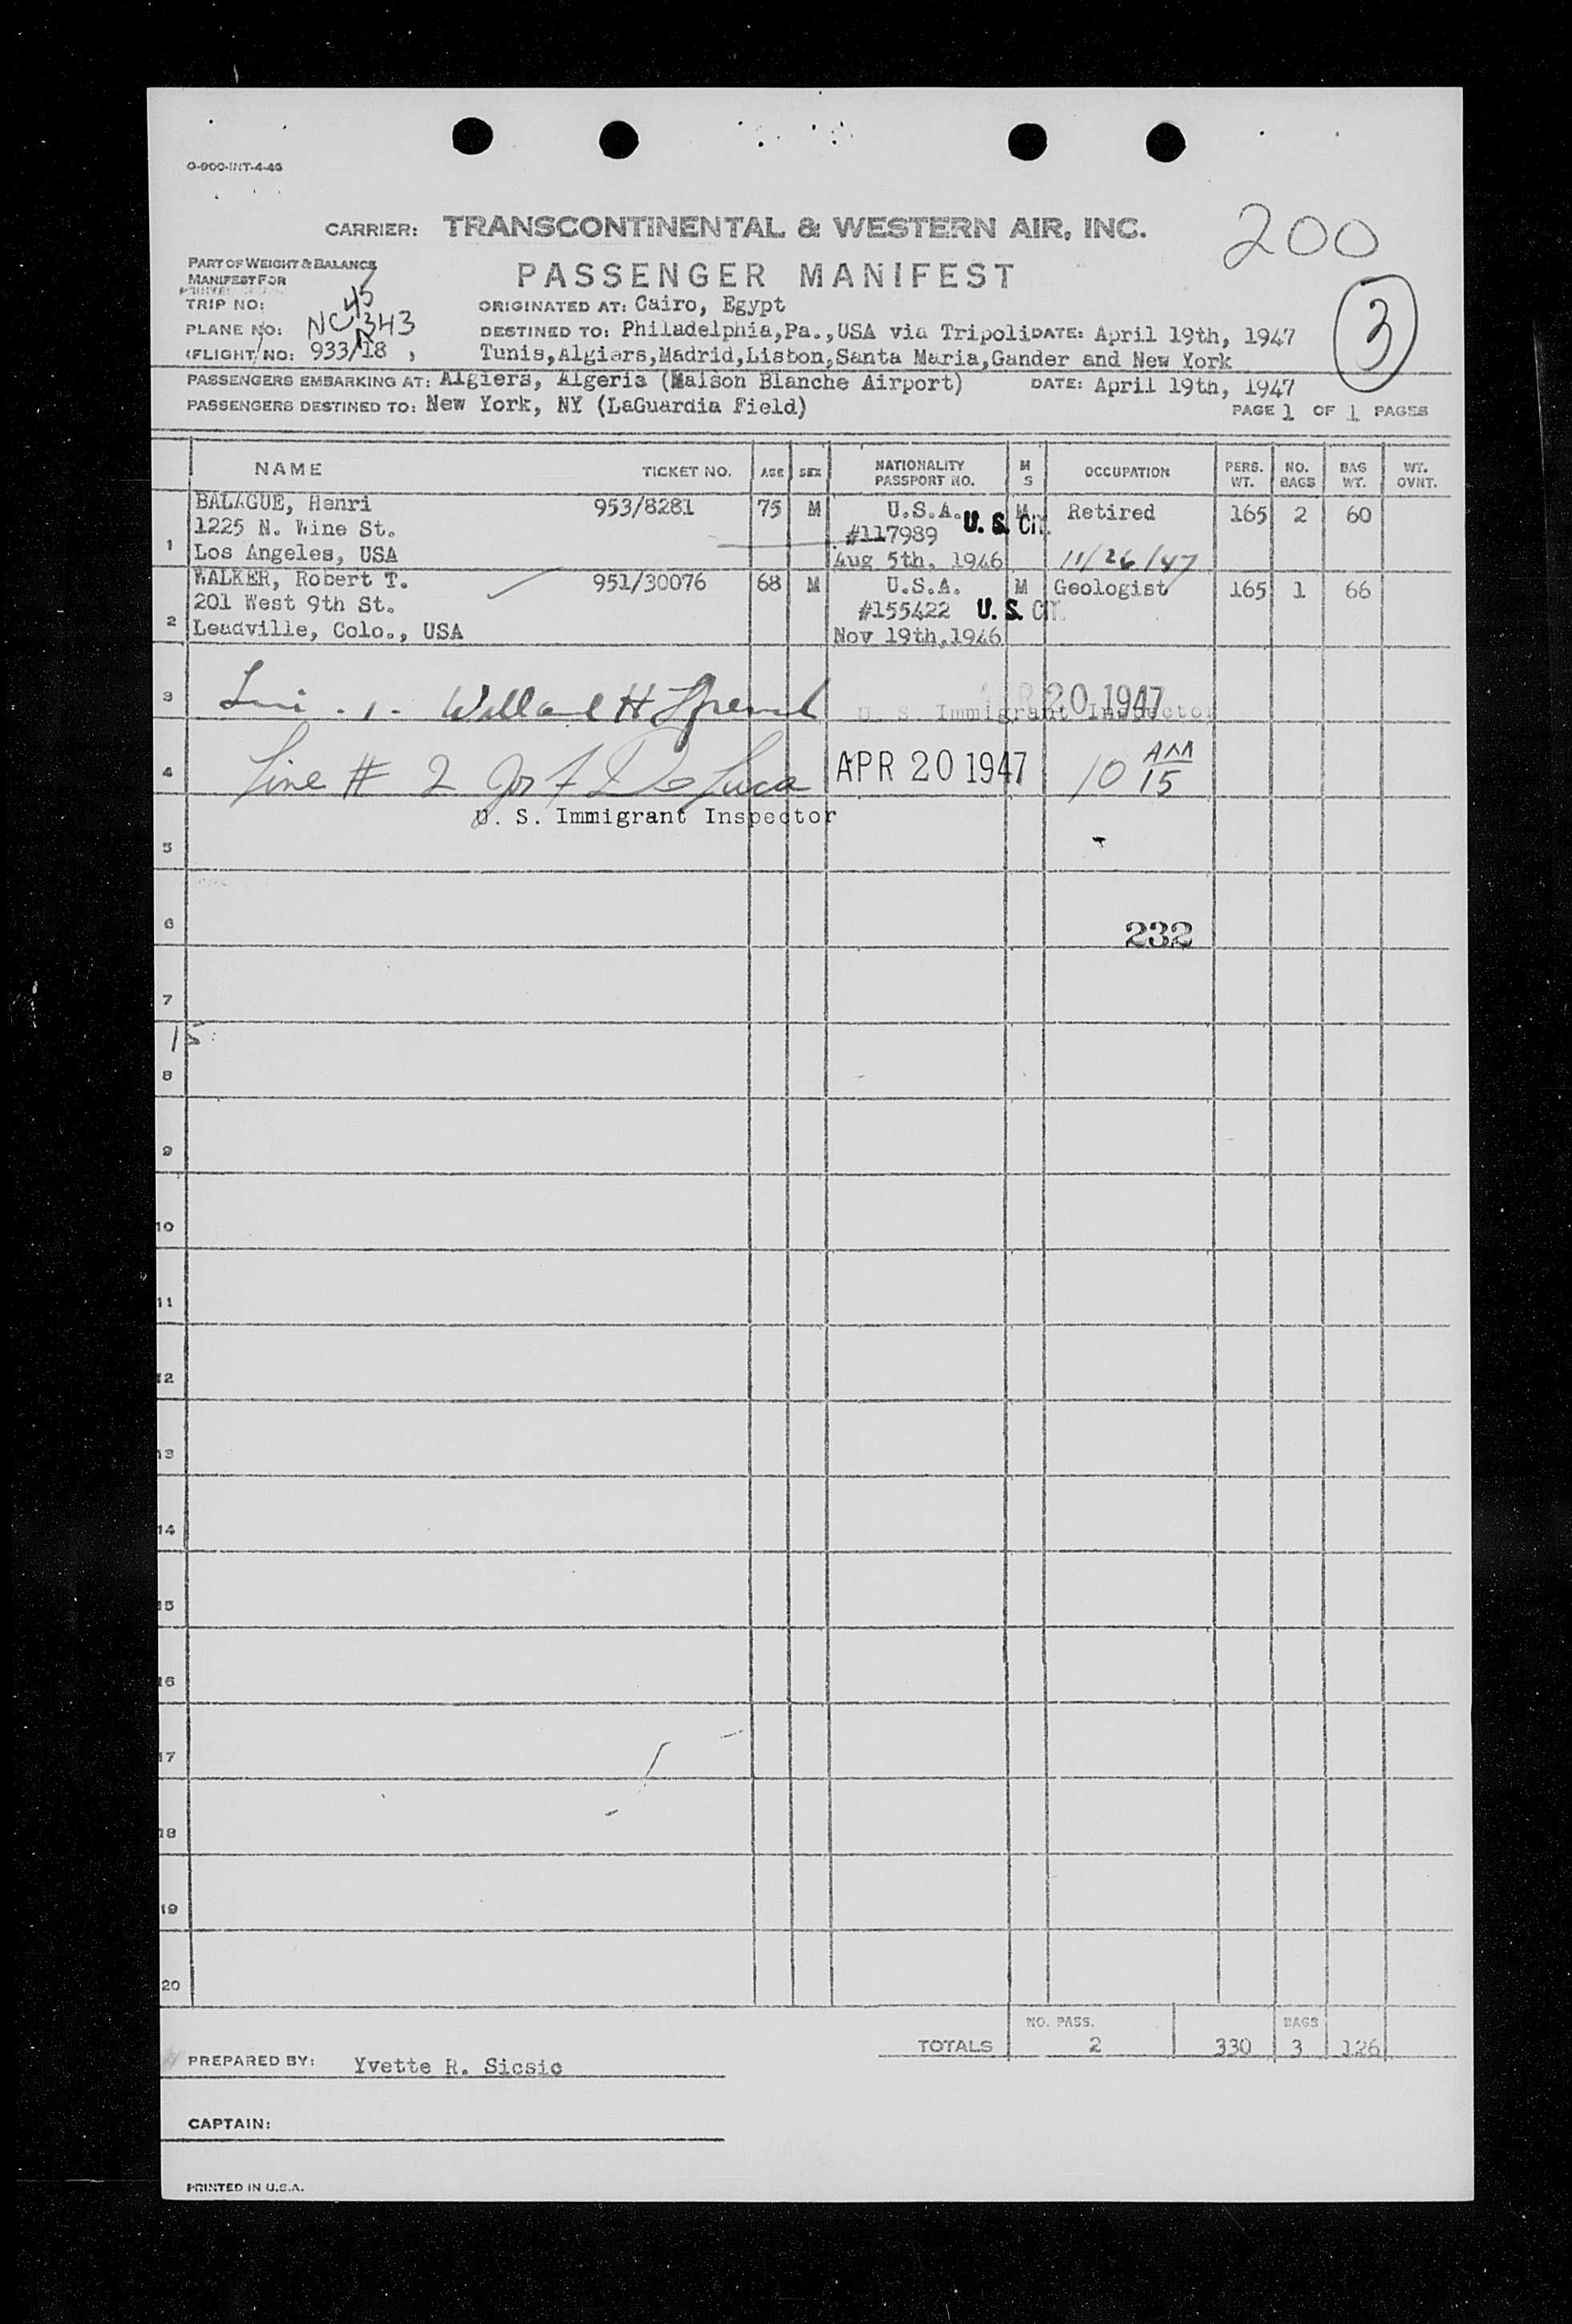 O-900-INT-4-46
CARRIER: TRANSCONTINENTAL & WESTERN AIR, INC. 200
PART OF WEIGHT & BALANCE
MANIFEST FOR
PASSENGER MANIFEST
TRIP NO:
ORIGINATED AT: Cairo, Egypt
3
PLANE NO: NC 45343
DESTINED TO: Philadelphia,Pa.,USA via Tripoli DATE: April 19th, 1947
(FLIGHT NO: 933/N18 ,
Tunis,Algiers,Madrid,Lisbon,Santa Maria,Gander and New York
PASSENGERS EMBARKING AT: Algiers, Algeria (Maison Blanche Airport) DATE: April 19th, 1947
PASSENGERS DESTINED TO: New York, NY (LaGuardia Field) PAGE 1 OF 1 PAGES
NAME TICKET NO. AGE SEX NATIONALITY PASSPORT NO. M S OCCUPATION PERS. WT. NO. BAGS BAG WT. WT. OVNT.
BALAGUE, Henri 953/8281 75 M U.S.A. M Retired 165 2 60
1225 N. Wine St. #117989 U. S. CIT.
1 Los Angeles, USA Aug 5th, 1946 11/26/47
WALKER, Robert T. 951/30076 68 M U.S.A. M Geologist 165 1 66
201 West 9th St. #155422 U. S. CIT.
2 Leadville, Colo., USA Nov 19th,1946
3 APR 20 1947
U. S. Immigrant Inspector
4 Line # 2 Jos F De Luca APR 20 1947 10 15 AM
U. S. Immigrant Inspector
5
6 232
7
15
8
9
10
11
12
13
14
15
16
17
18
19
20
NO. PASS. BAGS
TOTALS 2 330 3 126
PREPARED BY: Yvette R. Sicsic
CAPTAIN:
PRINTED IN U.S.A.